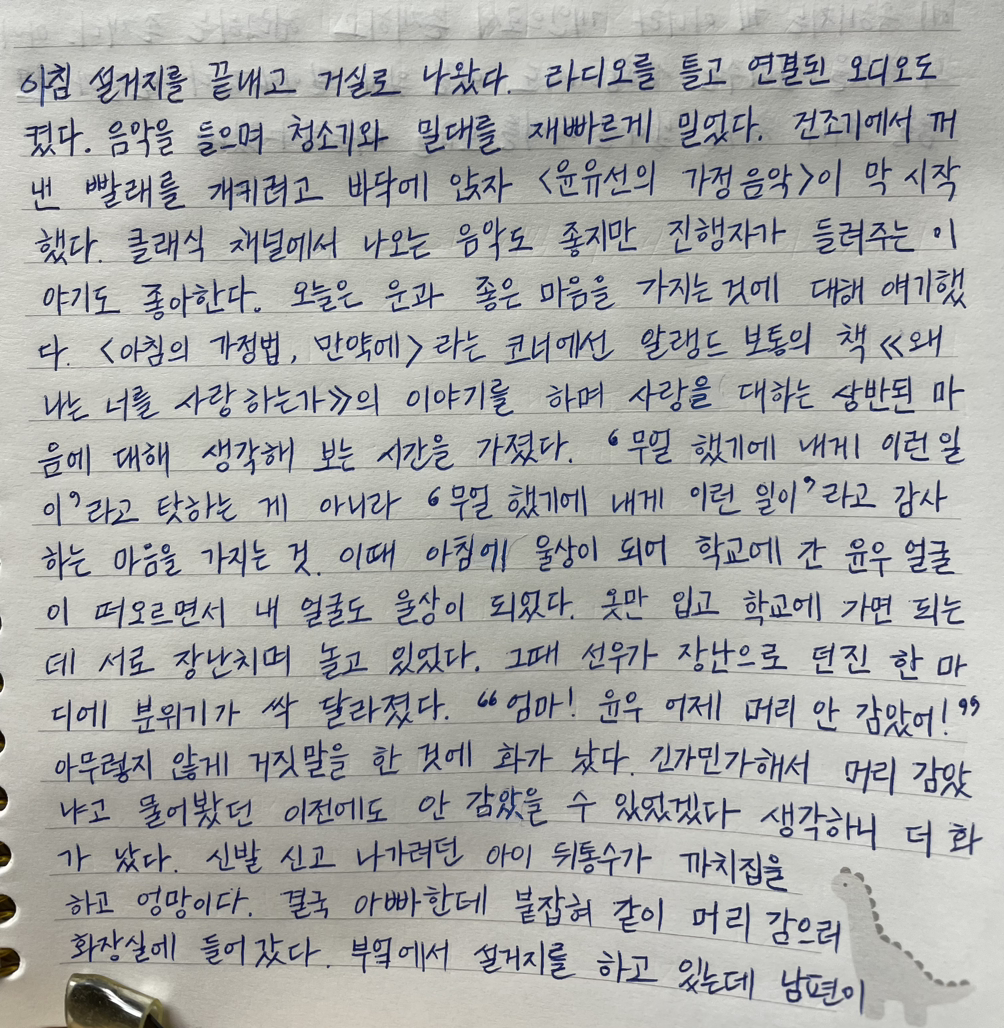 아침 설거지를 끝내고 거실로 나왔다. 라디오를 틀고 연결된 오디오도
켰다. 음악을 들으며 청소기와 밀대를 재빠르게 밀었다. 건조기에서 꺼
낸 빨래를 개키려고 바닥에 앉자 <윤유선의 가정음악>이 막 시작
했다. 클래식 채널에서 나오는 음악도 좋지만 진행자가 들려주는 이
야기도 좋아한다. 오늘은 운과 좋은 마음을 가지는 것에 대해 얘기했
다. <아침의 가정법, 만약에>라는 코너에선 알랭드 보통의 책 《왜
나는 너를 사랑하는가》의 이야기를 하며 사랑을 대하는 상반된 마
음에 대해 생각해 보는 시간을 가졌다. ‘무얼 했기에 내게 이런 일
이’라고 탓하는 게 아니라 ‘무얼 했기에 내게 이런 일이’라고 감사
하는 마음을 가지는 것. 이때 아침에 울상이 되어 학교에 간 윤우 얼굴
이 떠오르면서 내 얼굴도 울상이 되었다. 옷만 입고 학교에 가면 되는
데 서로 장난치며 놀고 있었다. 그때 선우가 장난으로 던진 한 마
디에 분위기가 싹 달라졌다. “엄마! 윤우 어제 머리 안 감았어!”
아무렇지 않게 거짓말을 한 것에 화가 났다. 긴가민가해서 머리 감았
냐고 물어봤던 이전에도 안 감았을 수 있었겠다 생각하니 더 화
가 났다. 신발 신고 나가려던 아이 뒤통수가 까치집을
하고 엉망이다. 결국 아빠한데 붙잡혀 같이 머리 감으러
화장실에 들어갔다. 부엌에서 설거지를 하고 있는데 남편이